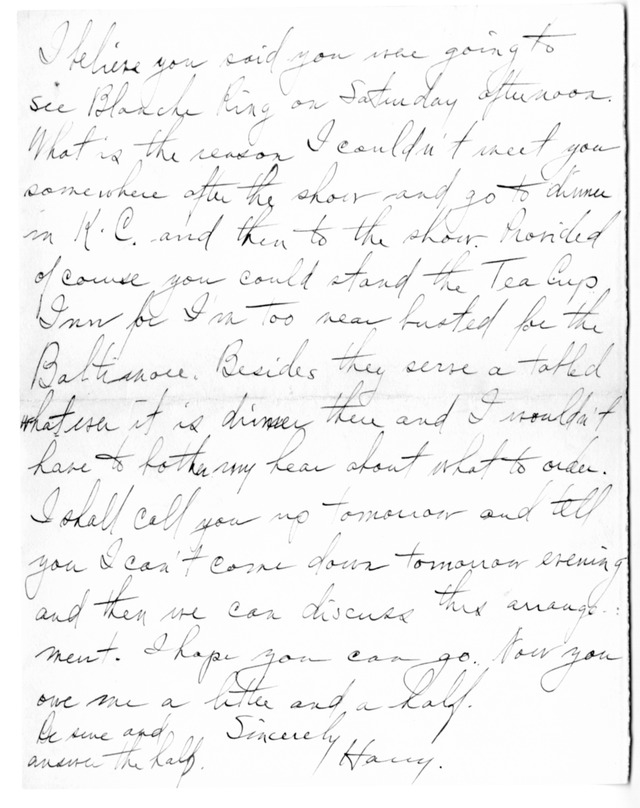 I believe you said you were going to
see Blanche Ring on Saturday afternoon.
What is the reason I couldn't meet you
somewhere after the show and go to dinner
in K.C. and then to the show. Provided
of course you could stand the Tea Cup
Inn for I'm too near busted for the
Baltimore. Besides they serve a tabled
whatever it is dinner there and I wouldn't
have to bother my hear about what to order.
I shall call you up tomorrow and tell
you I can't come down tomorrow evening
and then we can discuss this arrange-
ment. I hope you can go. Now you
owe me a letter and a half.
Be sure and
answer the half.
Sincerely
Harry.